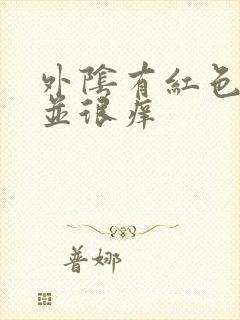 外陰有紅色
並很痒
普娜